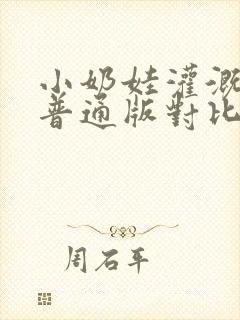 小奶娃灌溉
普通版對比
周石平